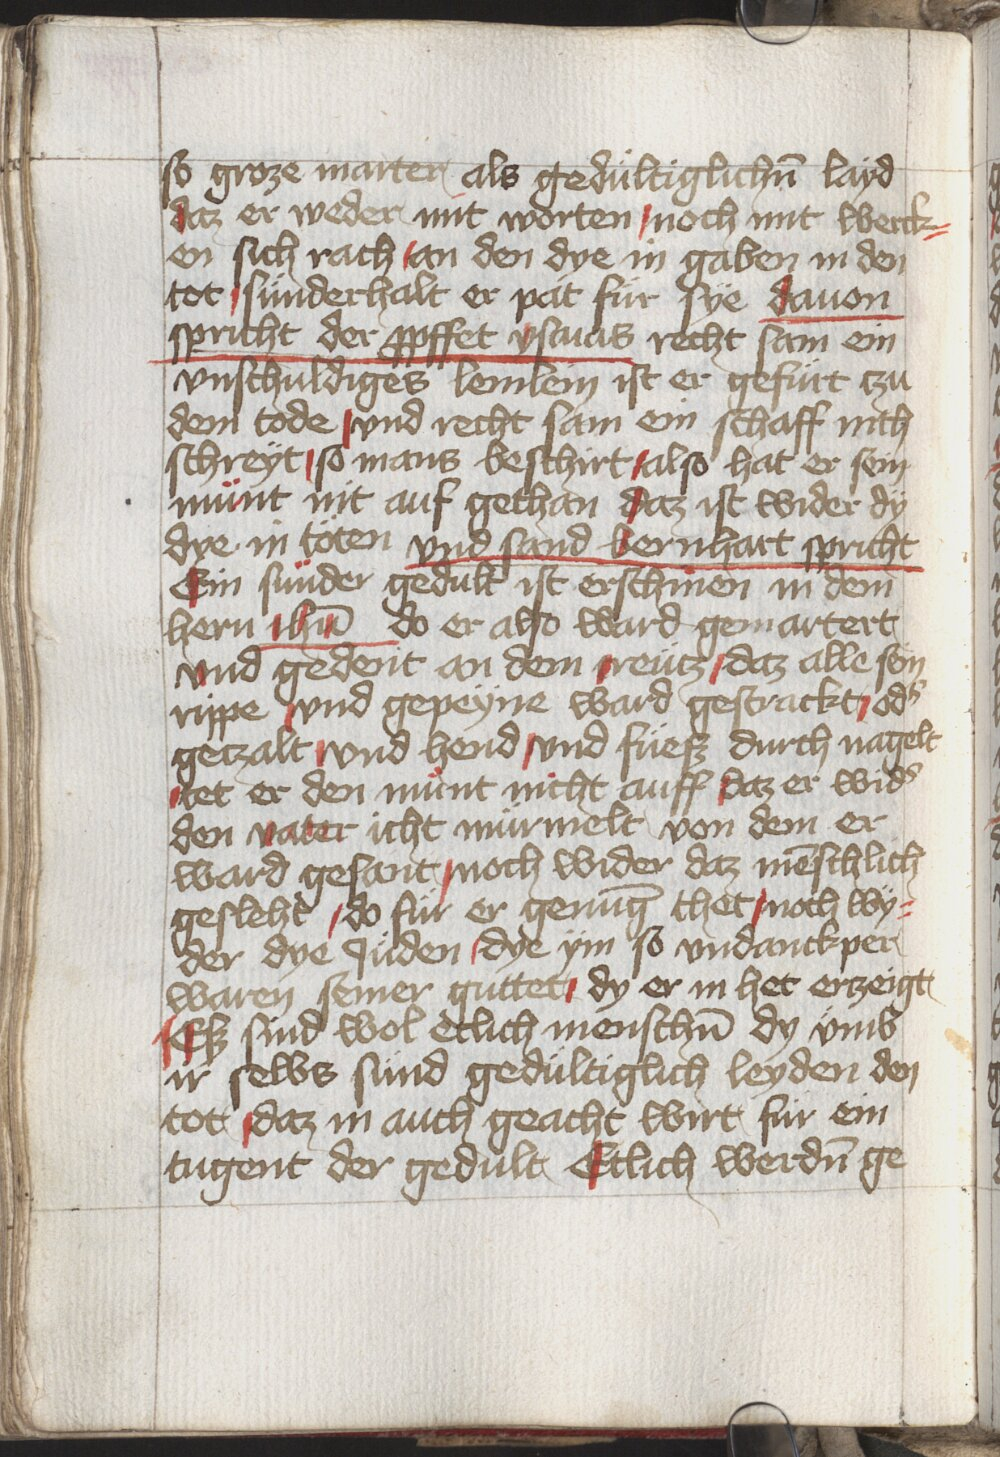 so groze marter als gedültiglichn̄ laÿd
daz er weder mit worten noch mit werck=
en sich rach an den dye in gaben in den
tot sünderhalt er pät für sÿe dauon
spricht der ꝓpffet ysaias recht sam ein
vnschuldiges lemlein ist er gefürt czu
dem tode vnd recht sam ein schaff nith
schreÿt so mans beschirt also hat er sein
münt nit auf gethan daz ist wider dÿ
dye in töten vnd sand bernhart spricht
Ein sünder gedult ist erschinen in dem
hern ihū do er also ward gemartert
vnd gedent an dem kreücz daz alle sein
rippe vnd gepeÿne ward gestrackt od̕
geczalt vnd hend vnd füeß durch nagelt
tet er den münt nicht auff daz er wid̕
den vater icht mürmelt von dem er
ward gesant noch wider daz mēschlich
gesleht do für er genūg thet noch wÿ=
der dye Jüden dye ÿm so vndanckper
waren seiner guttet dy er in het erzeigt
Eß sind wol etlich menschn̄ dy ümb
ir selbs sünd gedültiglich leyden den
tot daz in auch geacht wirt für ein
tugent der gedult Etlich werdn̄ ge